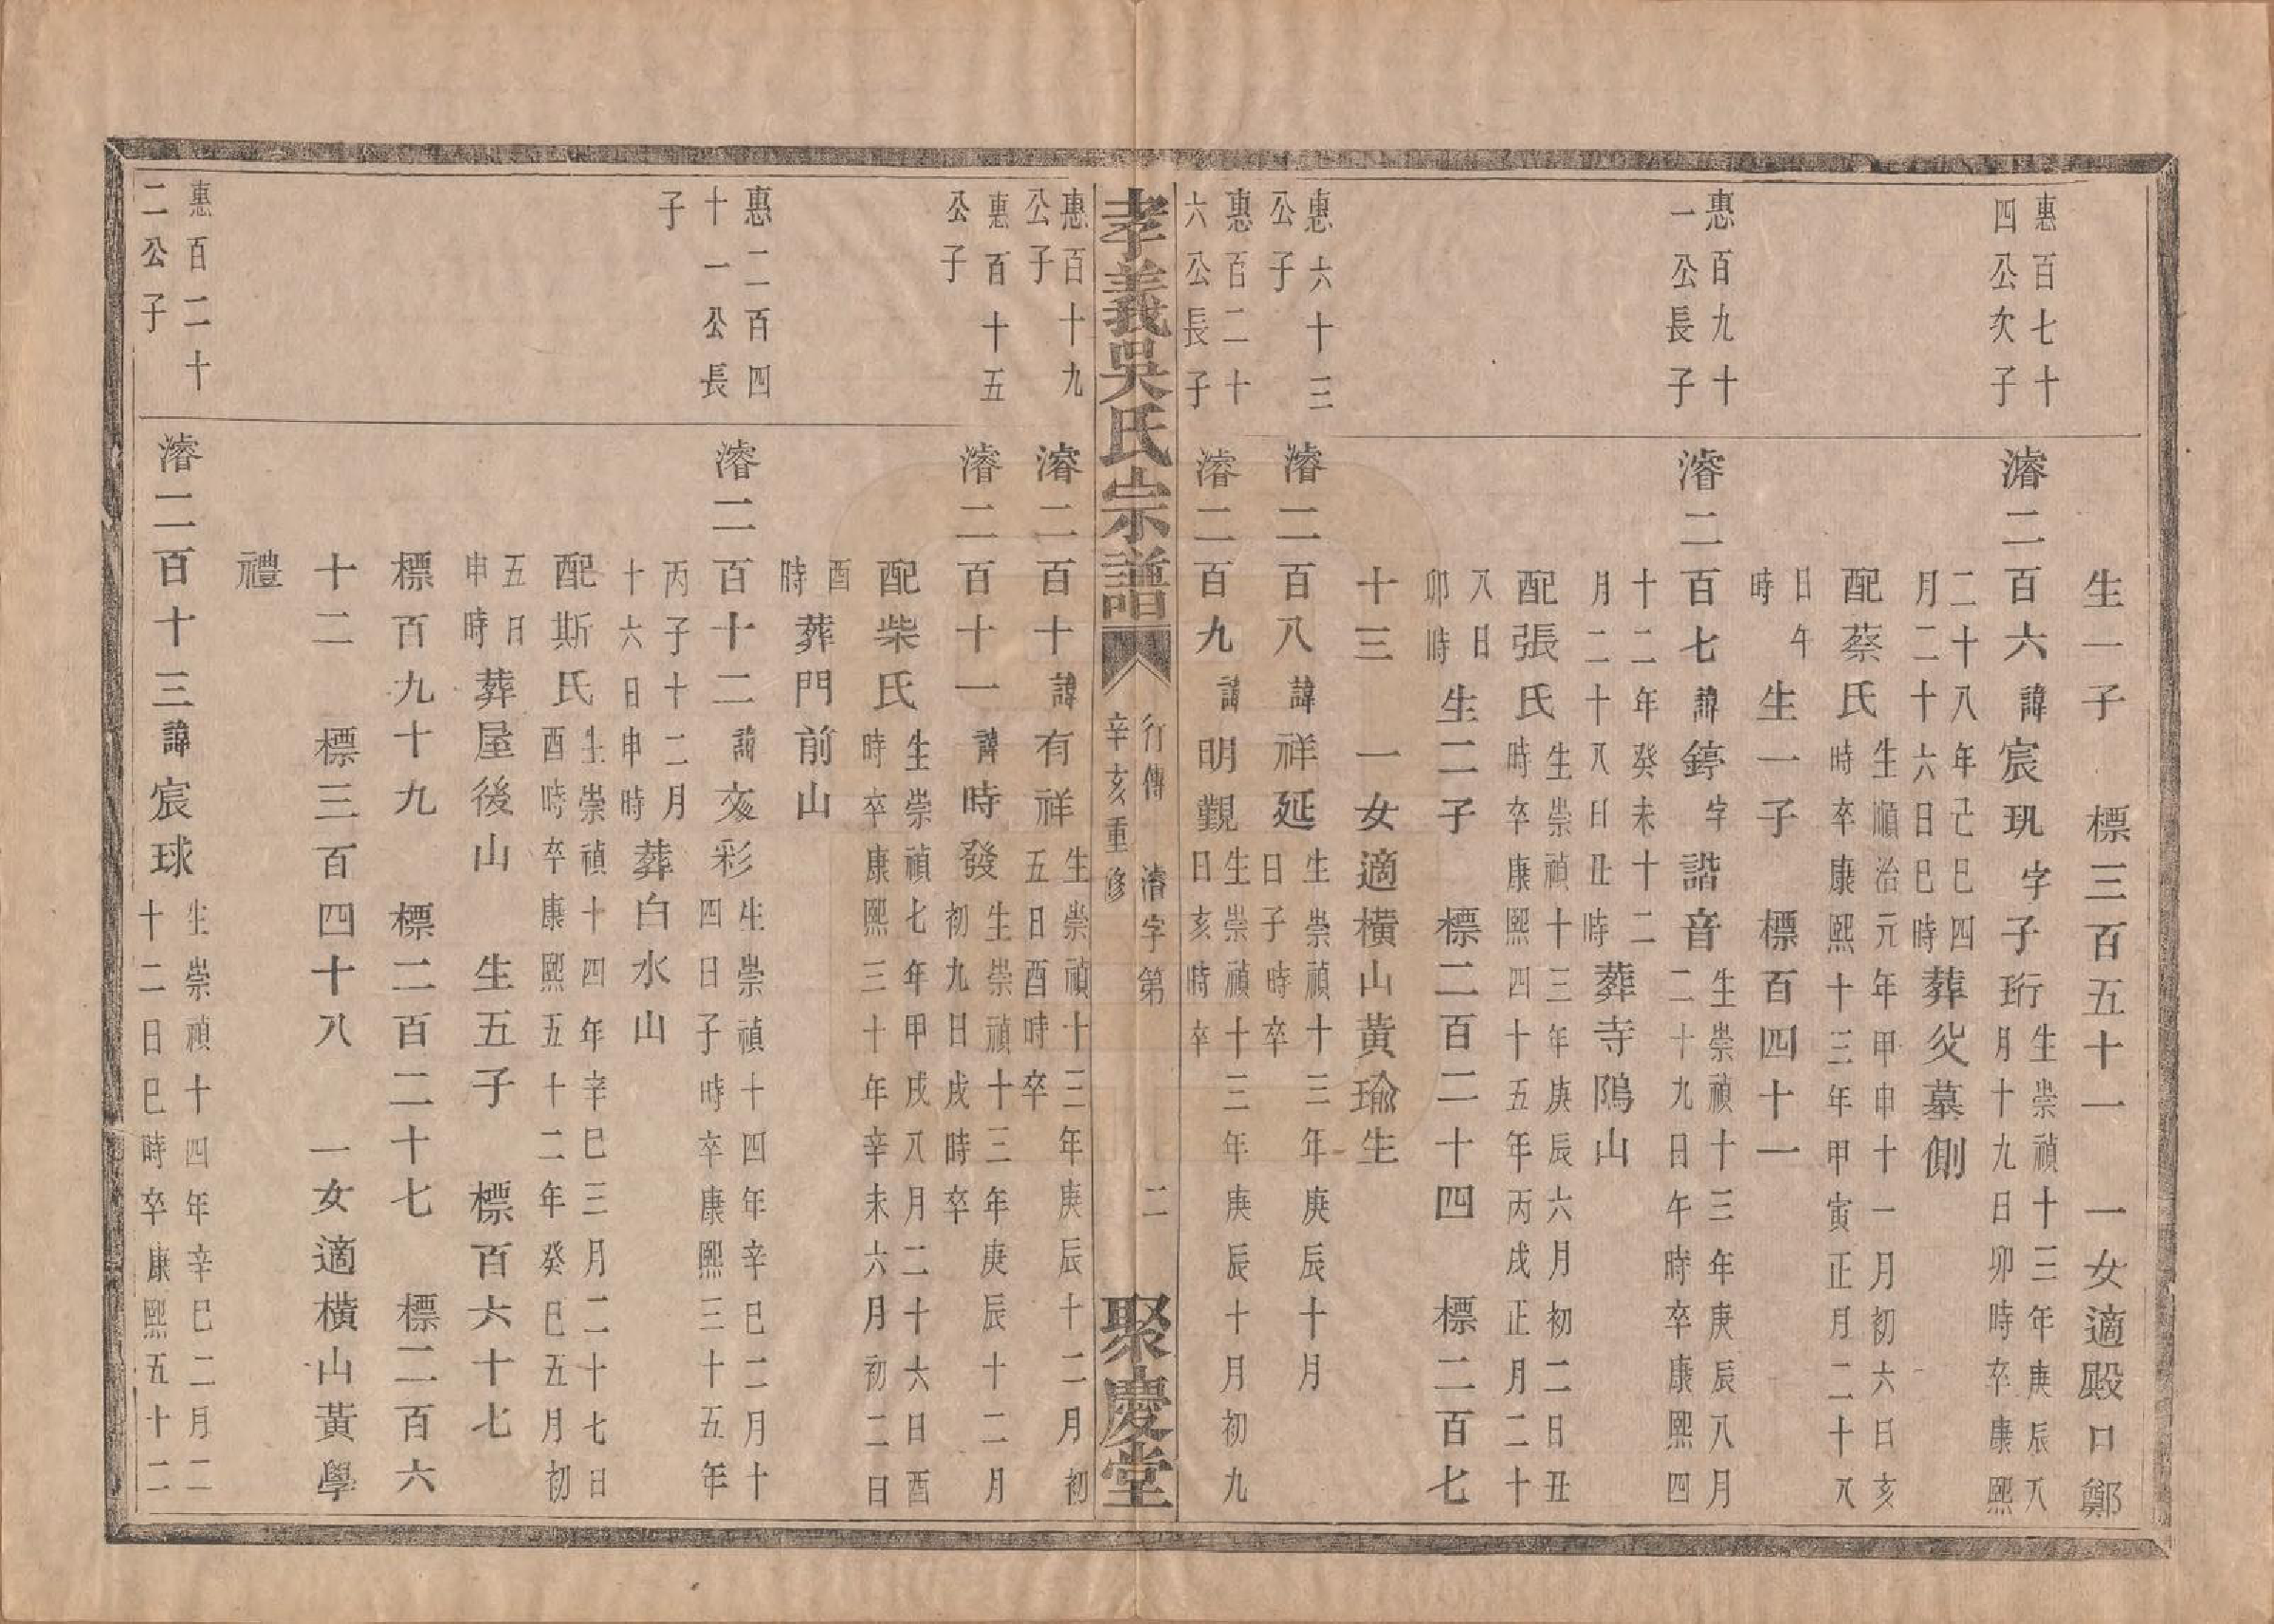 生一子 標三百五十一 一女適殿口鄭
惠百七十
四公次子
濬二百六諱宸玑字子珩
生崇禎十三年庚辰八
月十九日卯時卒康熙
二十八年己巳四
月二十六日巳時
葬父墓側
配蔡氏
生順治元年甲申十一月初六日亥
時卒康熙十三年甲寅正月二十八
日午
時
生一子 標百四十一
惠百九十
一公長子
濬二百七諱錞字諧音
生崇禎十三年庚辰八月
二十九日午時卒康熙四
十二年癸未十二
月二十八日丑時
葬寺隖山
配張氏
生崇禎十三年庚辰六月初二日丑
時卒康熙四十五年丙戌正月二十
八日
卯時
生二子 標二百二十四 標二百七
十三 一女適橫山黃瑜生
惠六十三
公子
濬二百八諱祥延
生崇禎十三年庚辰十月
日子時卒
惠百二十
六公長子
濬二百九諱明觀
生崇禎十三年庚辰十月初九
日亥時卒
孝義吳氏宗譜
行傳 濬字第 二
辛亥重修
聚慶堂
惠百十九
公子
濬二百十諱有祥
生崇禎十三年庚辰十二月初
五日酉時卒
惠百十五
公子
濬二百十一諱時發
生崇禎十三年庚辰十二月
初九日戌時卒
配柴氏
生崇禎七年甲戌八月二十六日酉
時卒康熙三十年辛未六月初二日
酉
時
葬門前山
惠二百四
十一公長
子
濬二百十二諱文彩
生崇禎十四年辛巳二月十
四日子時卒康熙三十五年
丙子十二月
十六日申時
葬白水山
配斯氏
生崇禎十四年辛巳三月二十七日
酉時卒康熙五十二年癸巳五月初
五日
申時
葬屋後山 生五子 標百六十七
標百九十九 標二百二十七 標二百六
十二 標三百四十八 一女適橫山黃學
禮
惠百二十
二公子
濬二百十三諱宸球
生崇禎十四年辛巳二月二
十二日巳時卒康熙五十二